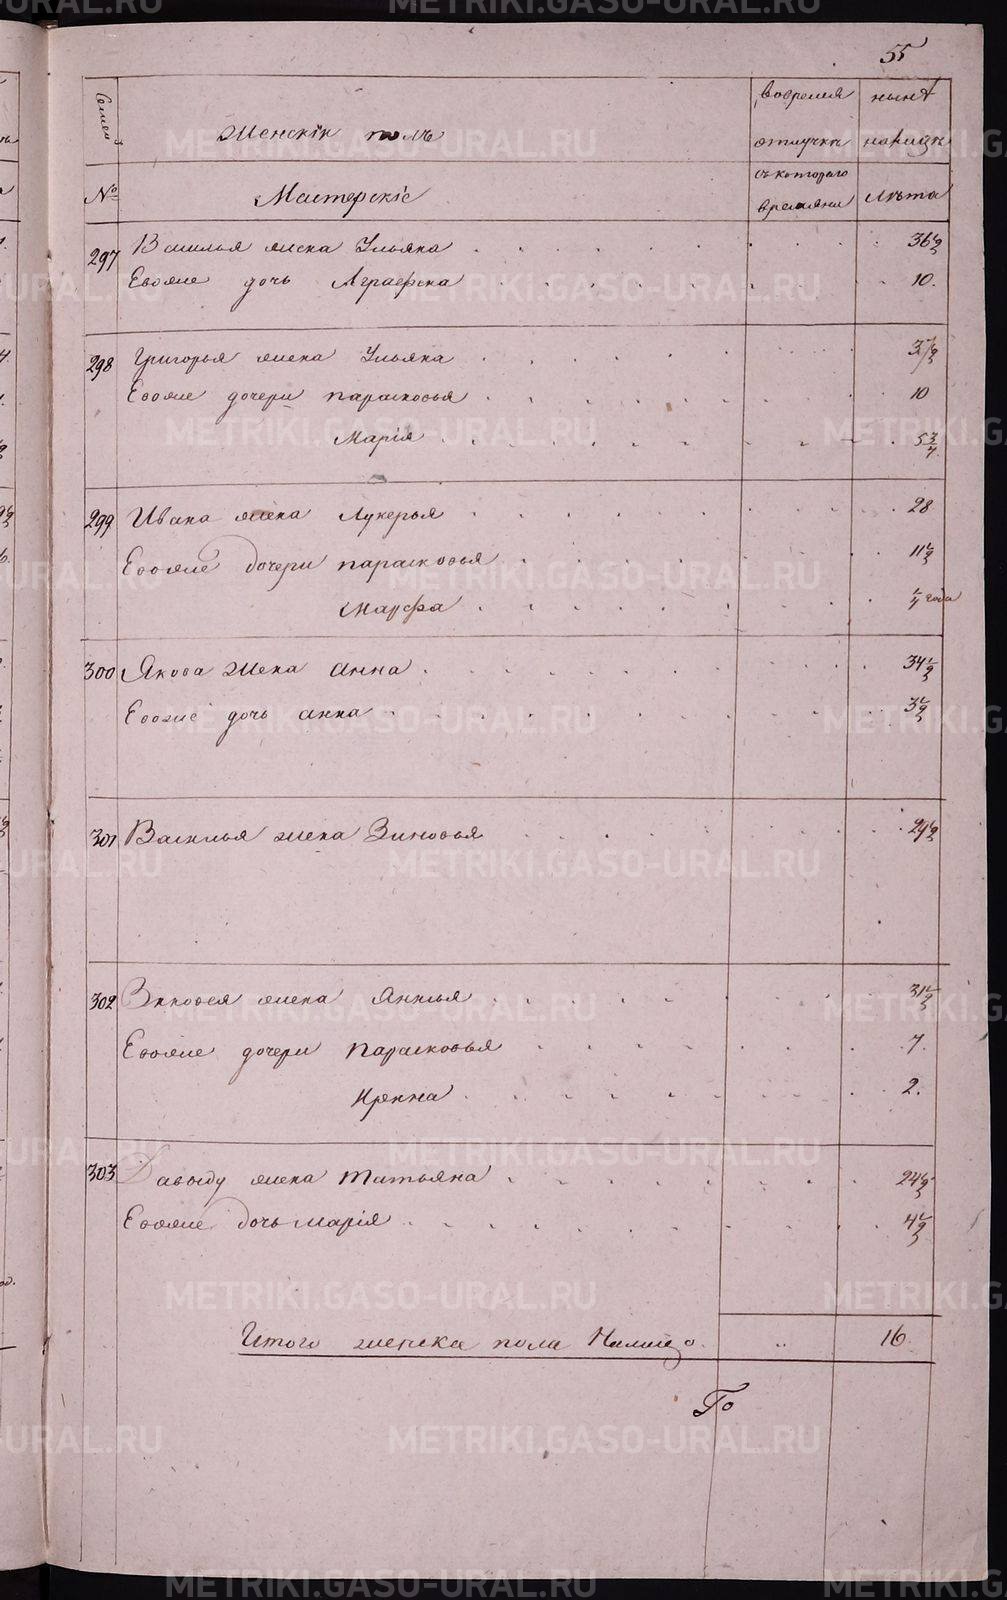 55
Семей
№
Женскiй полъ
Мастерскiе
во временной
отлучкѣ
съ котораго
времяни
нынѣ
на лицѣ
лѣта
297 Василья жена Ульяна 36½
Евоже дочь Аграфена 10.
298 Григорья жена Ульяна 37½
Евоже дочери парасковья 10
Марiя 5¾
299 Ивана жена Лукерья 28
Евоже дочери парасковья 11½
Марфа ¼ года
300 Якова жена анна 34½
Евоже дочь анна 3½
301 Василья жена Зиновья 29½
302 Зиновья жена Анисья 31½
Евоже дочери Парасковья 7.
Ирина 2.
303 Давыду жена татьяна 24½
Евоже дочь марiя 4½
Итого женска пола Налицо. „ 16.
METRIKI.GASO-URAL.RU